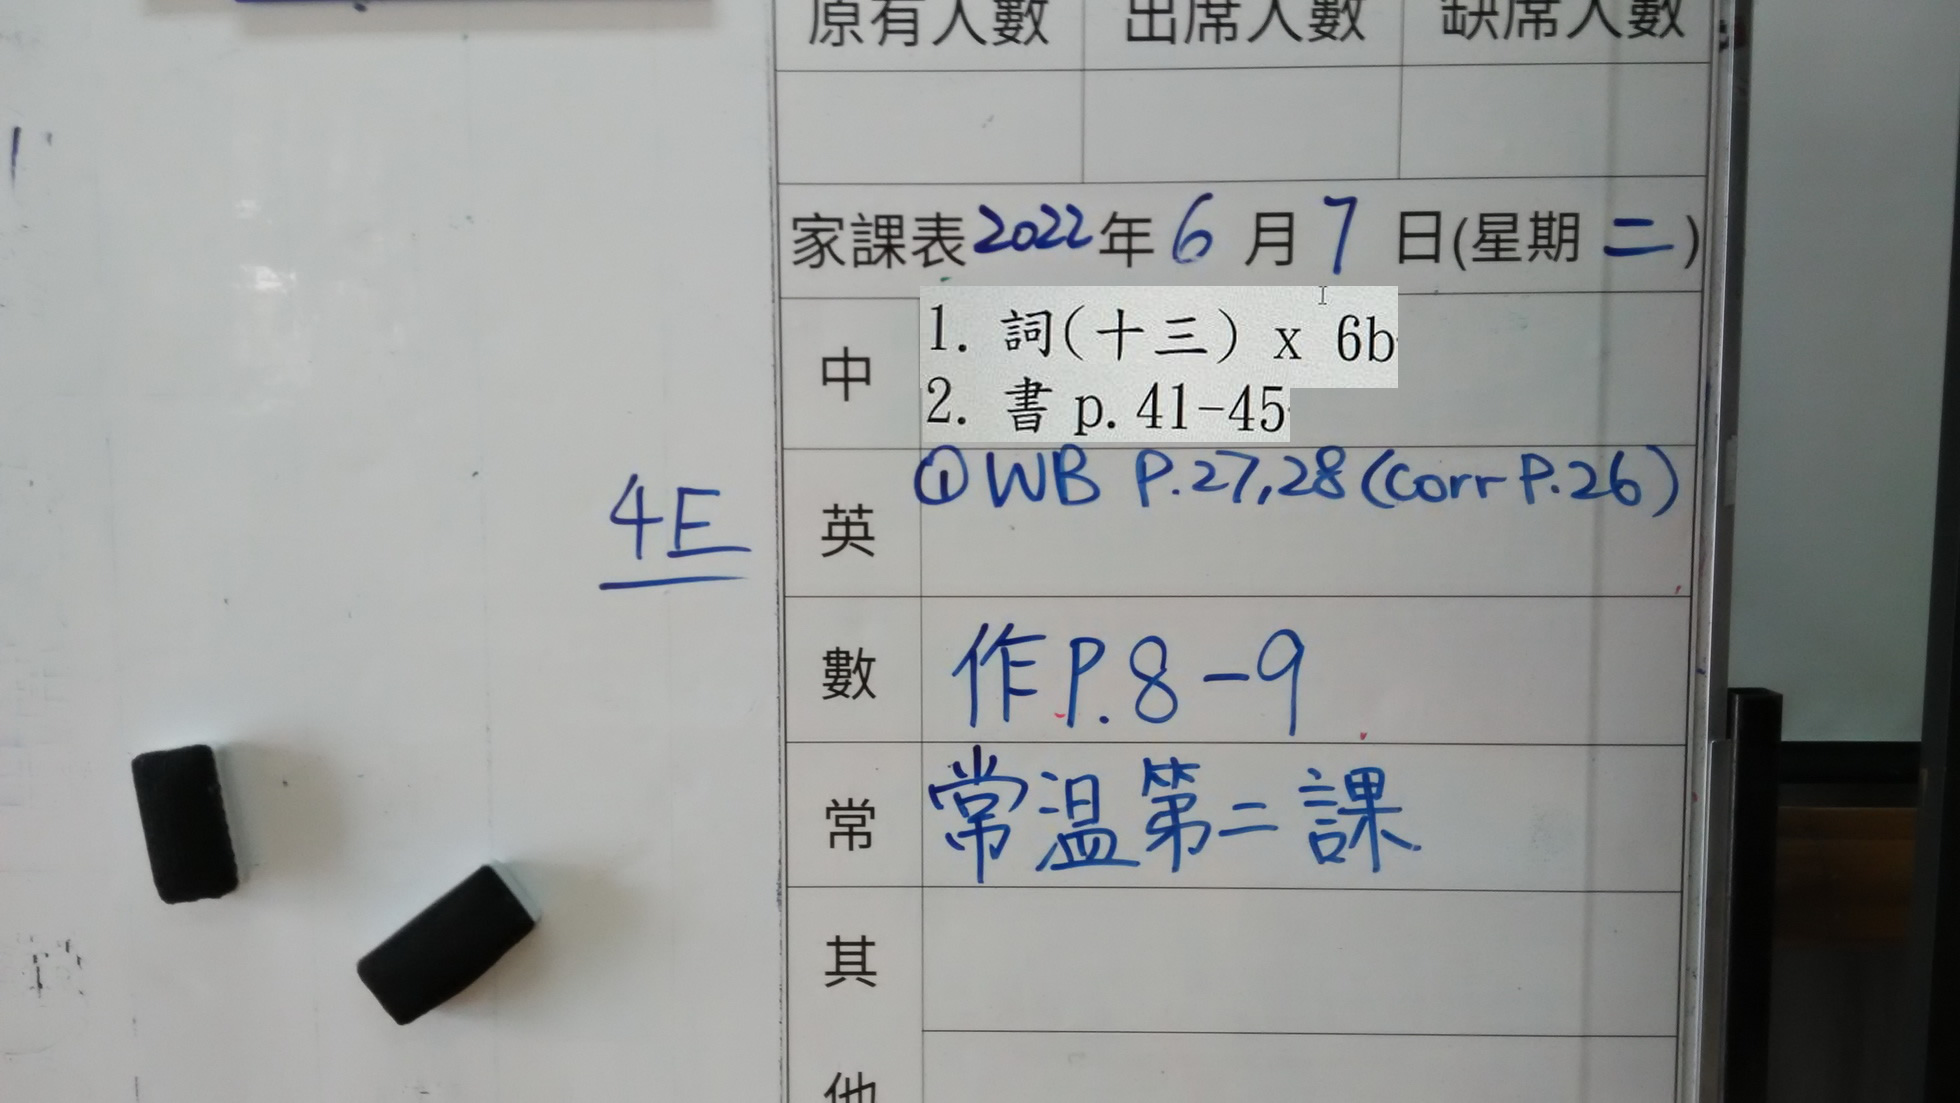 原有人數 出席人數 缺席人數
家課表2022年6月7日(星期二)
中
1. 詞(十三) x 6b
2. 書 p.41-45
英
①WB P.27,28(Corr P.26)
4E
數
作P.8-9
常
常温第二課
其
他